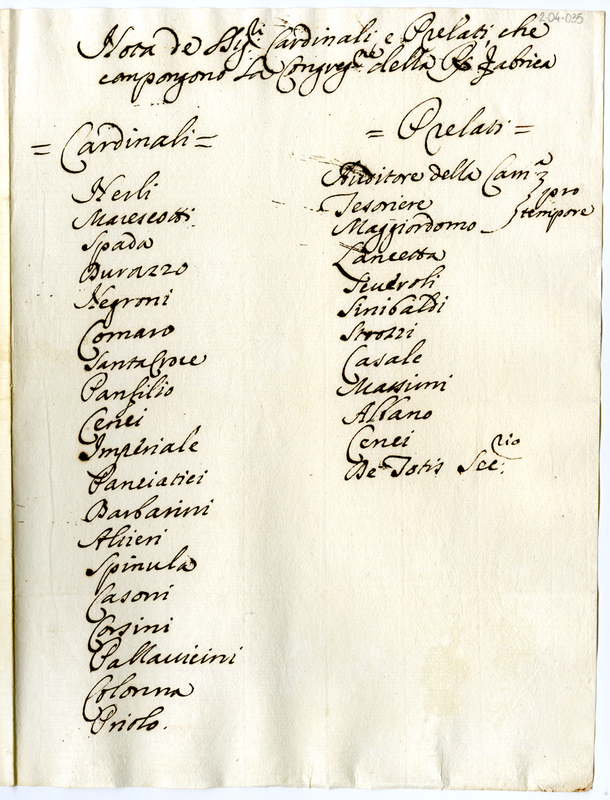 2-04-035
Nota de SSig.ri Cardinali e Prelati, che
compongono la Congreg.ne della Fabrica
= Cardinali =
Nerli
Marescotti
Spada
Durazzo
Negroni
Cornaro
SantaCroce
Panfilio
Cenci
Imperiale
Panciatici
Barbarini
Altieri
Spinula
Casoni
Corsini
Pallavicini
Colonna
Priolo.
= Prelati =
Auditore della Cam.a
Tesoriere
Maggiordomo
pro
tempore
Lancetta
Sinibaldi
Strozzi
Casale
Massimi
Albano
Cenci
De Totis Sec.rio